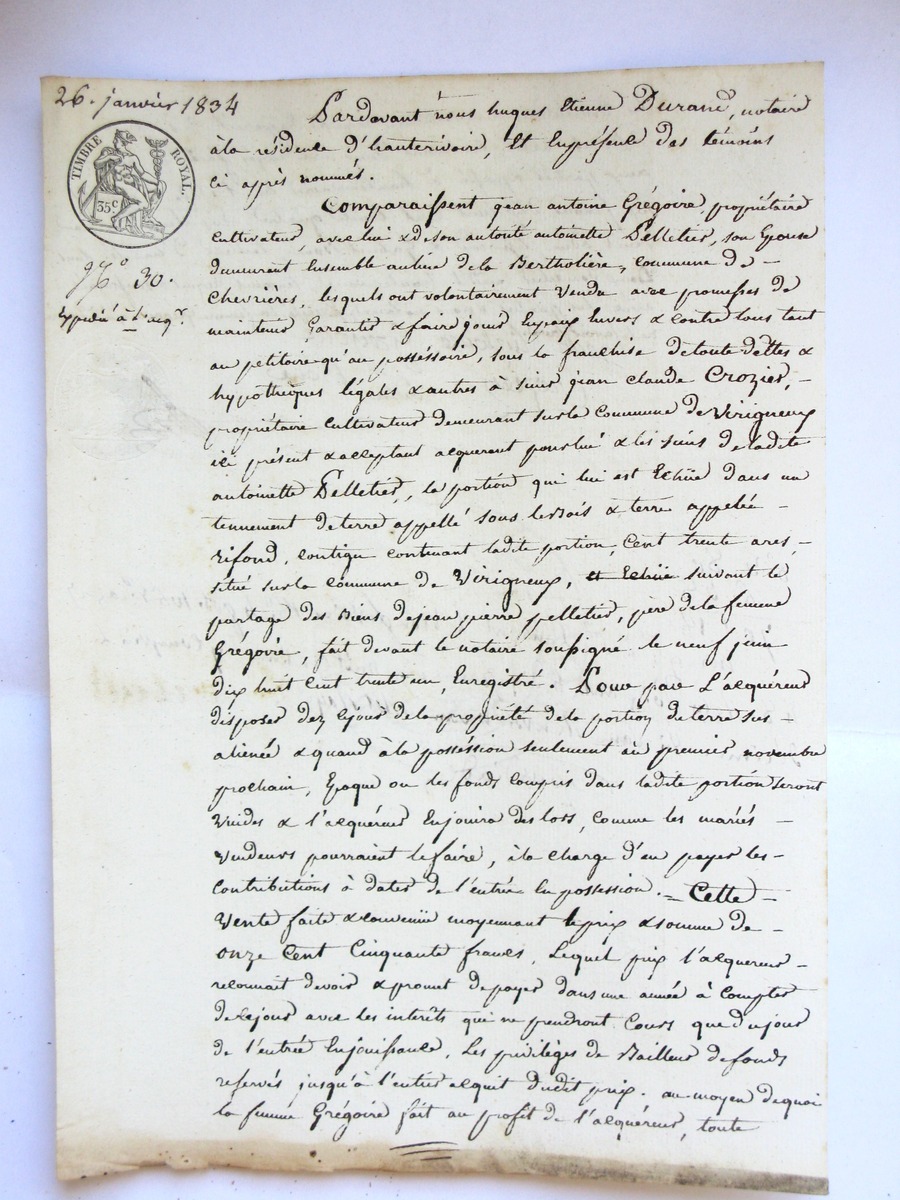 26. janvier 1834
TIMBRE ROYAL.
35c
No 30.
Expedié à l'acqr.
Pardavant nous hugues Etienne Durand, notaire
à la résidence d'hauterivoire, Et En présence des témoins
ci après nommés.
Comparaissent jean antoine Grégoire, propriétaire
cultivateur, avec lui & de son autorité antoinette Pelletier, son Epouse
demeurent Ensemble au lieu de la Bertholière, commune de -
chevrières, lesquels ont volontairement vendu avec promesses de
maintenir Garantir & faire jouir En paix Envers & contre tous tant
au petitoire qu'au posséssoire, sous la franchise de toute dettes &
hypothèques légales & autres à sieur jean claude Crozier, -
propriétaire cultivateur demeurant sur la Commune de Virigneux
ici présent & acceptant acquerant pour lui & les siens de ladite
antoinette Pelletier, la portion qui lui est Echüe dans un
tennement de terre appellé sous le Bois & terre appelée -
rifond, contigu contenant ladite portion, Cent trente ares, -
situé sur la commune de Virigneux, et Echüe suivant le
partage des Biens de jean pierre pelletier, père de la femme
Grégoire, fait devant le notaire soussigné le neuf juin
dix huit cent trente un, Enregistré. Pour par L'acquéreur
disposer dez cejour de la propriété de la portion de terre sus -
aliénée & quand à la posséssion seulement au premier novembre
prochain, Epoque ou les fonds compris dans ladite portion seront
vuides & l'acquéreur En jouira des lors, comme les mariés -
vendeurs pourraient le faire, à la charge d'en payer les -
contributions à dater de l'entrée En possession. = Cette -
vente faite & convenüe moyennant le prix & somme de -
onze Cent Cinquante francs, Lequel prix l'acquereur -
reconnait devoir & promet de payer dans une année à compter
de cejour avec les interêts qui ne prendront Cours que du jour
de l'entrée En jouissance, Les privilèges de Bailleur de fonds
reservés jusqu'à l'entier acquit dudit prix. au moyen de quoi
la femme Grégoire fait au profit de l'acquéreur, toute